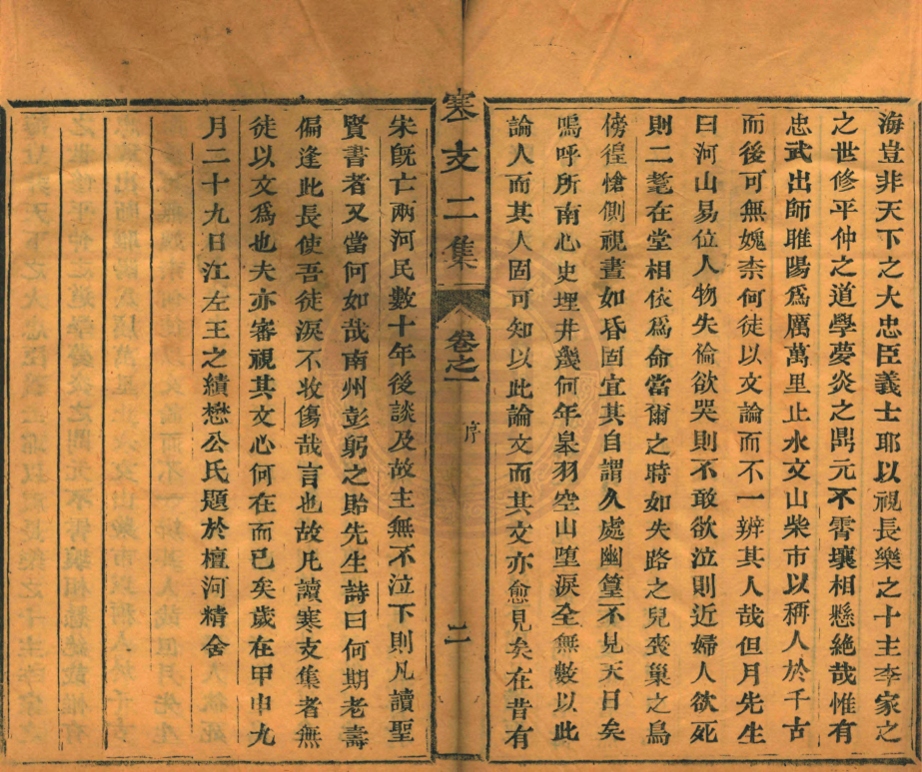 海豈非天下之大忠臣義士耶以視長樂之十主李家之
之世修平仲之道學夢炎之鼎元不霄壤相懸絶哉惟有
忠武出師睢陽爲厲萬里止水文山柴市以稱人於千古
而後可無媿柰何徒以文論而不一辨其人哉但月先生
曰河山易位人物失倫欲哭則不敢欲泣則近婦人欲死
則二耄在堂相依爲命當爾之時如失路之兒喪巢之鳥
傍徨愴側視晝如昏固宜其自謂久處幽篁不見天日矣
嗚呼所南心史埋井幾何年皋羽空山墮淚全無數以此
論人而其人固可知以此論文而其文亦愈見矣在昔有
寒支二集
卷之一
序
二
宋既亡兩河民數十年後談及故主無不泣下則凡讀聖
賢書者又當何如哉南州彭躬之貽先生詩曰何期老壽
偏逢此長使吾徒淚不收傷哉言也故凡讀寒支集者無
徒以文爲也夫亦審視其文心何在而已矣歲在甲申九
月二十九日江左王之績懋公氏題於檀河精舍